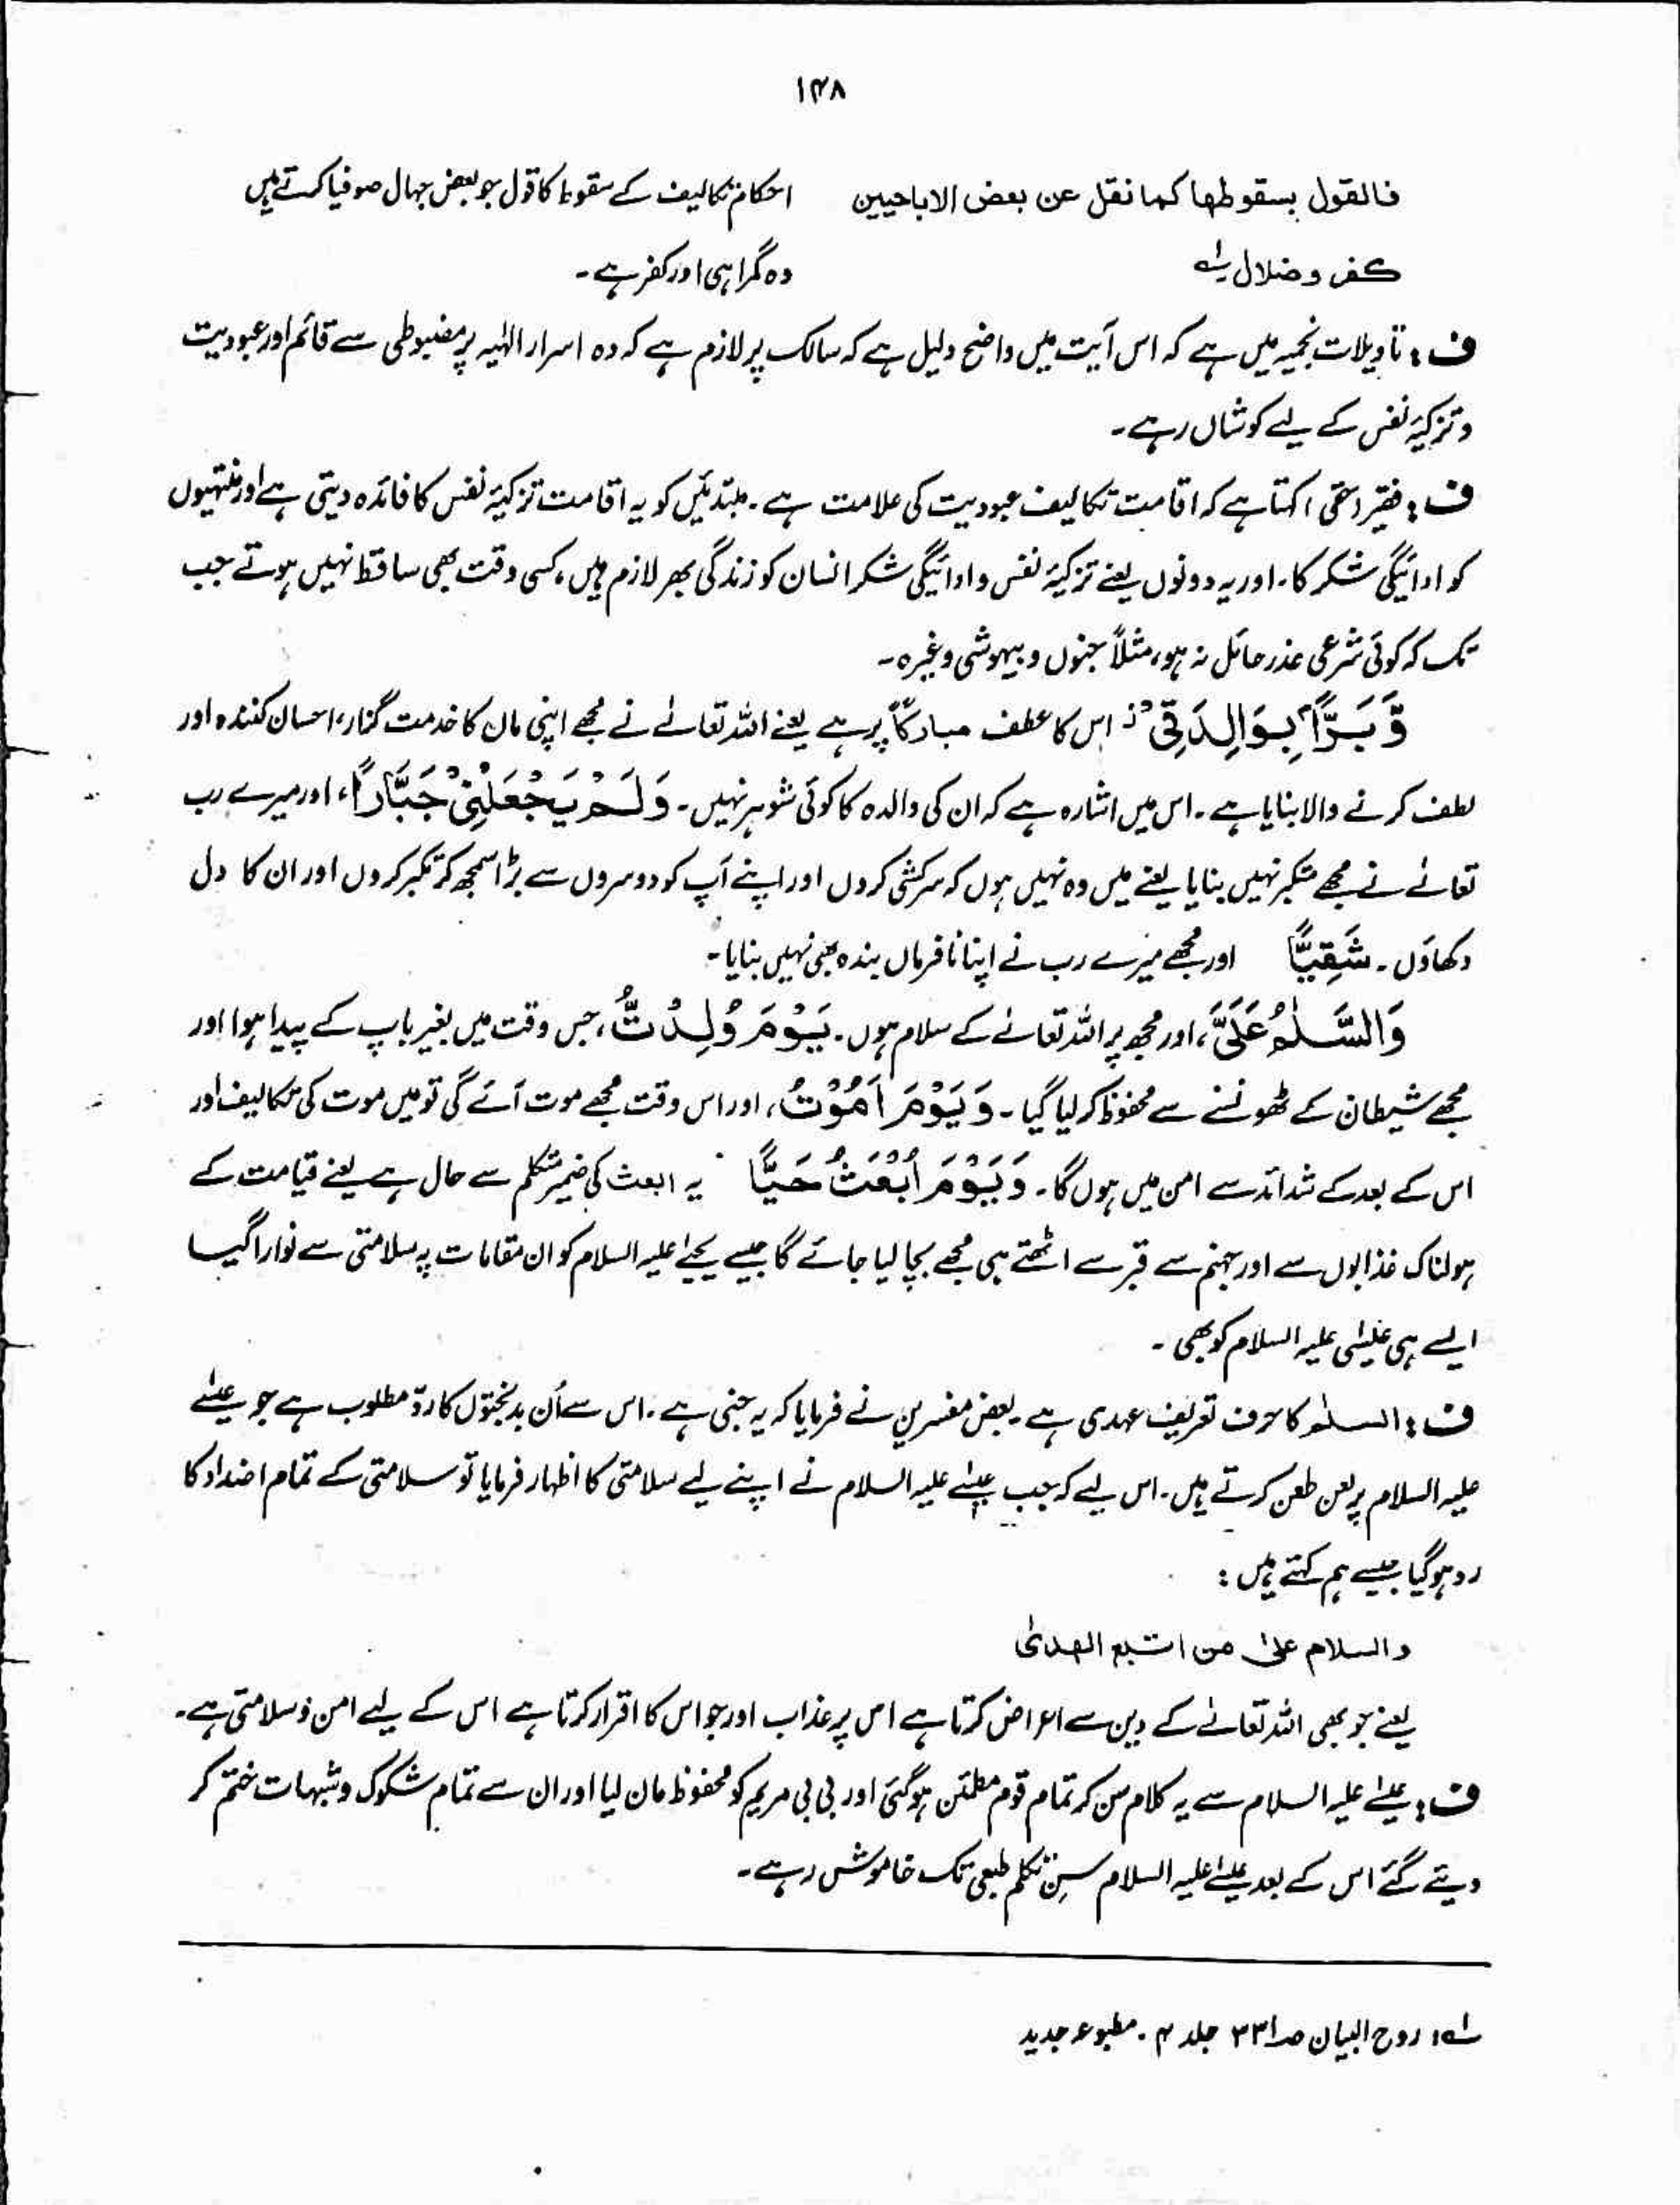 ۱۴۸
فالقول بسقوطها كما نقل عن بعض الاباحيين احکام تکالیف کے سقوط کا قول جو بعض جہال صوفیا کہتے ہیں
كفر وضلال لہ وہ گمراہی اور کفر ہے۔
ف: تاویلات نجمیہ میں ہے کہ اس آیت میں واضح دلیل ہے کہ سالک پر لازم ہے کہ وہ اسرار الٰہیہ پر مضبوطی سے قائم اور عبودیت
و تزکیۂ نفس کے لیے کوشاں رہے۔
ف: فقیر (حقی) کہتا ہے کہ اقامت تکالیف عبودیت کی علامت ہے۔ مبتدئیں کو یہ اقامت تزکیۂ نفس کا فائدہ دیتی ہے اور منتہیوں
کو ادائیگی شکر کا۔ اور یہ دونوں یعنے تزکیۂ نفس و ادائیگی شکر انسان کو زندگی بھر لازم ہیں، کسی وقت بھی ساقط نہیں ہوتے جب
تک کہ کوئی شرعی عذر حائل نہ ہو، مثلاً جنوں و بیہوشی وغیرہ۔
وَّ بَرًّۢا بِوَالِدَتِیْ ز اس کا عطف مبارکاً پر ہے یعنے اللہ تعالےٰ نے مجھے اپنی ماں کا خدمت گذار، احسان کنندہ اور
لطف کرنے والا بنایا ہے۔ اس میں اشارہ ہے کہ ان کی والدہ کا کوئی شوہر نہیں۔ وَلَمْ یَجْعَلْنِیْ جَبَّارًا، اور میرے رب
تعالےٰ نے مجھے متکبر نہیں بنایا یعنے میں وہ نہیں ہوں کہ سرکشی کروں اور اپنے آپ کو دوسروں سے بڑا سمجھ کر تکبر کروں اور ان کا دل
دکھاؤں۔ شَقِیًّا اور مجھے میرے رب نے اپنا نافرماں بندہ بھی نہیں بنایا۔
وَالسَّلٰمُ عَلَیَّ، اور مجھ پر اللہ تعالےٰ کے سلام ہوں۔ یَوْمَ وُلِدْتُّ، جس وقت میں بغیر باپ کے پیدا ہوا اور
مجھے شیطان کے ٹھونسنے سے محفوظ کر لیا گیا۔ وَ یَوْمَ اَمُوْتُ، اور اس وقت مجھے موت آئے گی تو میں موت کی تکالیف اور
اس کے بعد کے شدائد سے امن میں ہوں گا۔ وَ یَوْمَ اُبْعَثُ حَیًّا یہ ابعث کی ضمیر متکلم سے حال ہے یعنے قیامت کے
ہولناک عذابوں سے اور جہنم سے قبر سے اٹھتے ہی مجھے بچا لیا جائے گا جیسے یحییٰ علیہ السلام کو ان مقامات پہ سلامتی سے نوازا گیا
ایسے ہی عیسٰی علیہ السلام کو بھی۔
ف: السلٰم کا حرف تعریف عہدی ہے۔ بعض مفسرین نے فرمایا کہ یہ جنسی ہے۔ اس سے اُن بدبختوں کا ردّ مطلوب ہے جو عیسٰے
علیہ السلام پر لعن طعن کرتے ہیں۔ اس لیے کہ جب عیسٰے علیہ السلام نے اپنے لیے سلامتی کا اظہار فرمایا تو سلامتی کے تمام اضداد کا
رد ہو گیا جیسے ہم کہتے ہیں:
والسلام علیٰ من اتبع الھدیٰ
یعنے جو بھی اللہ تعالےٰ کے دین سے اعراض کرتا ہے اس پر عذاب اور جو اس کا اقرار کرتا ہے اس کے لیے امن و سلامتی ہے۔
ف: عیسٰے علیہ السلام سے یہ کلام سن کر تمام قوم مطمئن ہو گئی اور بی بی مریم کو محفوظ مان لیا اور ان سے تمام شکوک و شبہات ختم کر
دیئے گئے اس کے بعد عیسٰے علیہ السلام سِن تکلم طبعی تک خاموش رہے۔
لہ: روح البیان صـ ۳۳۱ جلد ۴۔ مطبوعہ جدید